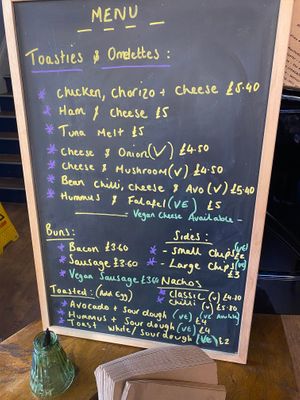 MENU
Toasties & Omelettes :
* Chicken, Chorizo + Cheese £5.40
* Ham & Cheese £5
* Tuna Melt £5
* Cheese & Onion (V) £4.50
* Cheese & Mushroom (V) £4.50
* Bean Chilli, Cheese & Avo (V) £5.40
* Hummus & Falafel (VE) £5
Vegan Cheese Available -
Buns:
* Bacon £3.60
* Sausage £3.60
* Vegan Sausage £3.60
Toasted: (Add Egg)
* Avocado + Sour dough (VE) £4
* Hummus + Sour dough (VE) £4
* Toast White/Sour dough (VE) £2
Sides:
* - Small Chips (VE)
* - Large Chips (VE) £3
Nachos (VE Available)
* Classic (V) £4.80
* Chilli (V) £5.80